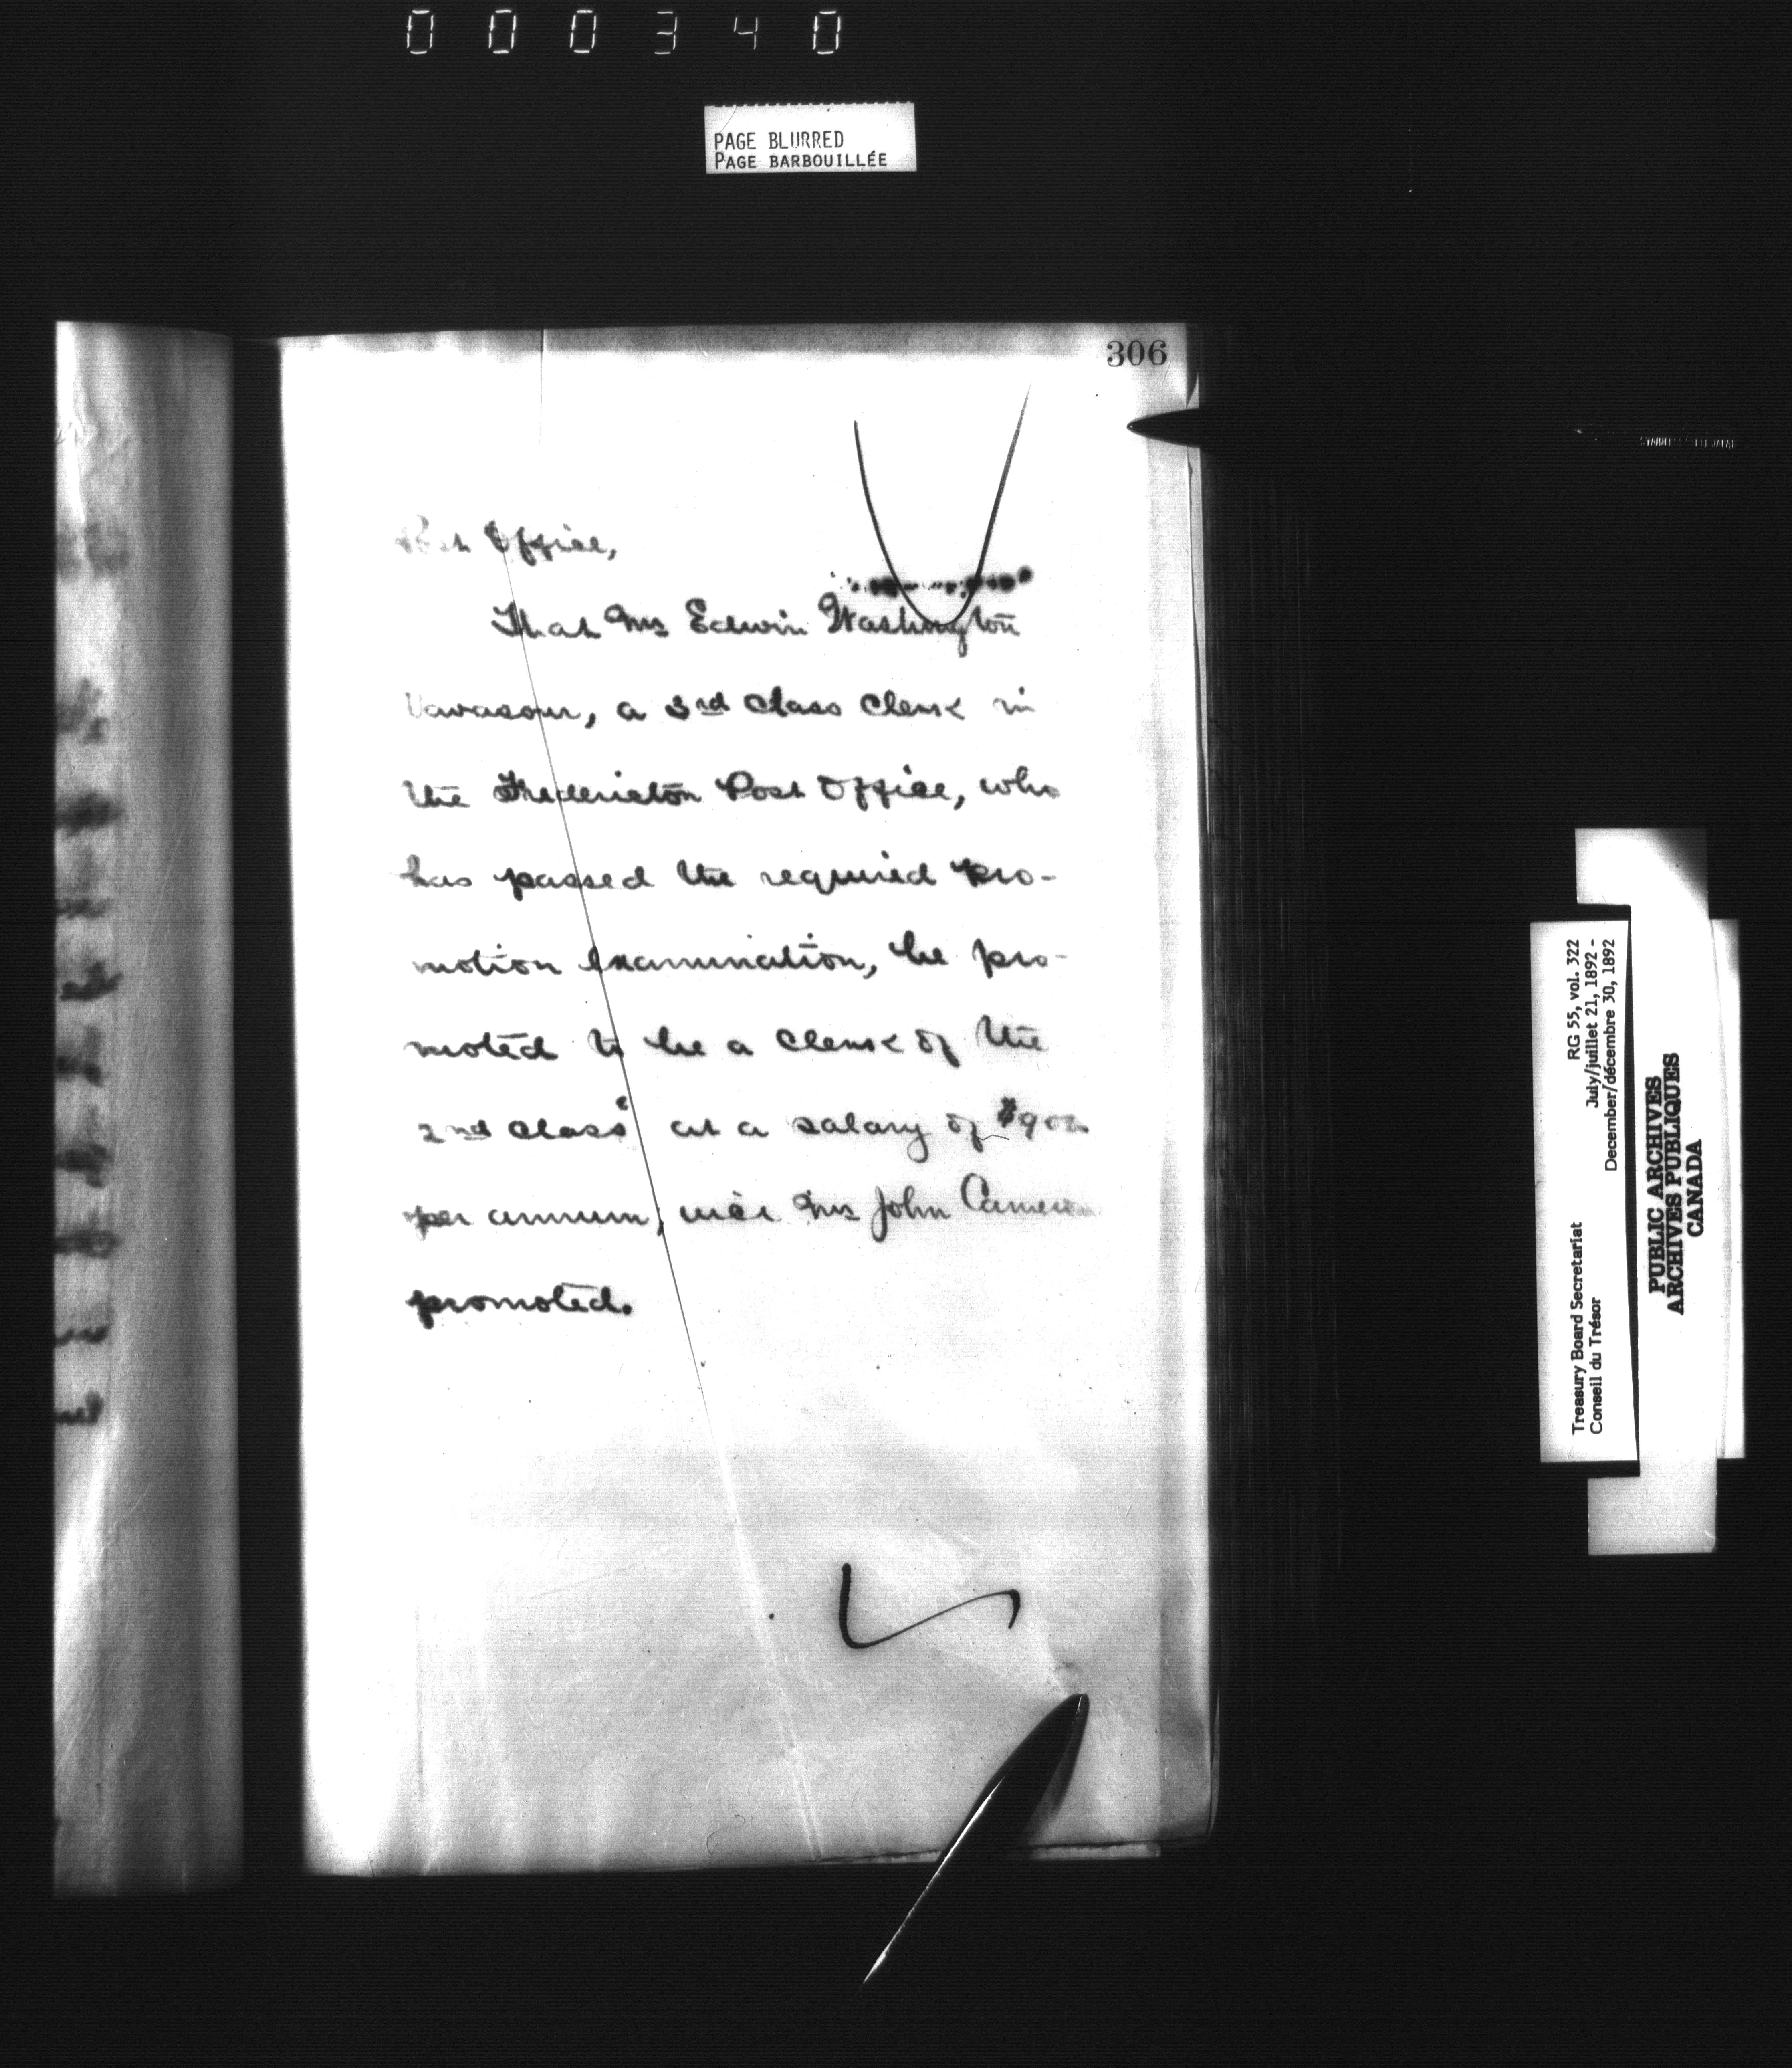 000340
PAGE BLURRED
PAGE BARBOUILLÉE
306
Post Office,
That Mr Edwin Washington
Vavasour, a 3rd Class Clerk in
the Fredericton Post Office, who
has passed the required pro-
motion examination, be pro-
moted to be a Clerk of the
2nd Class at a salary of $900
per annum, vice Mr John Cameron
promoted.
Treasury Board Secretariat RG 55, vol. 322
Conseil du Trésor July/juillet 21, 1892 -
December/décembre 30, 1892
PUBLIC ARCHIVES
ARCHIVES PUBLIQUES
CANADA